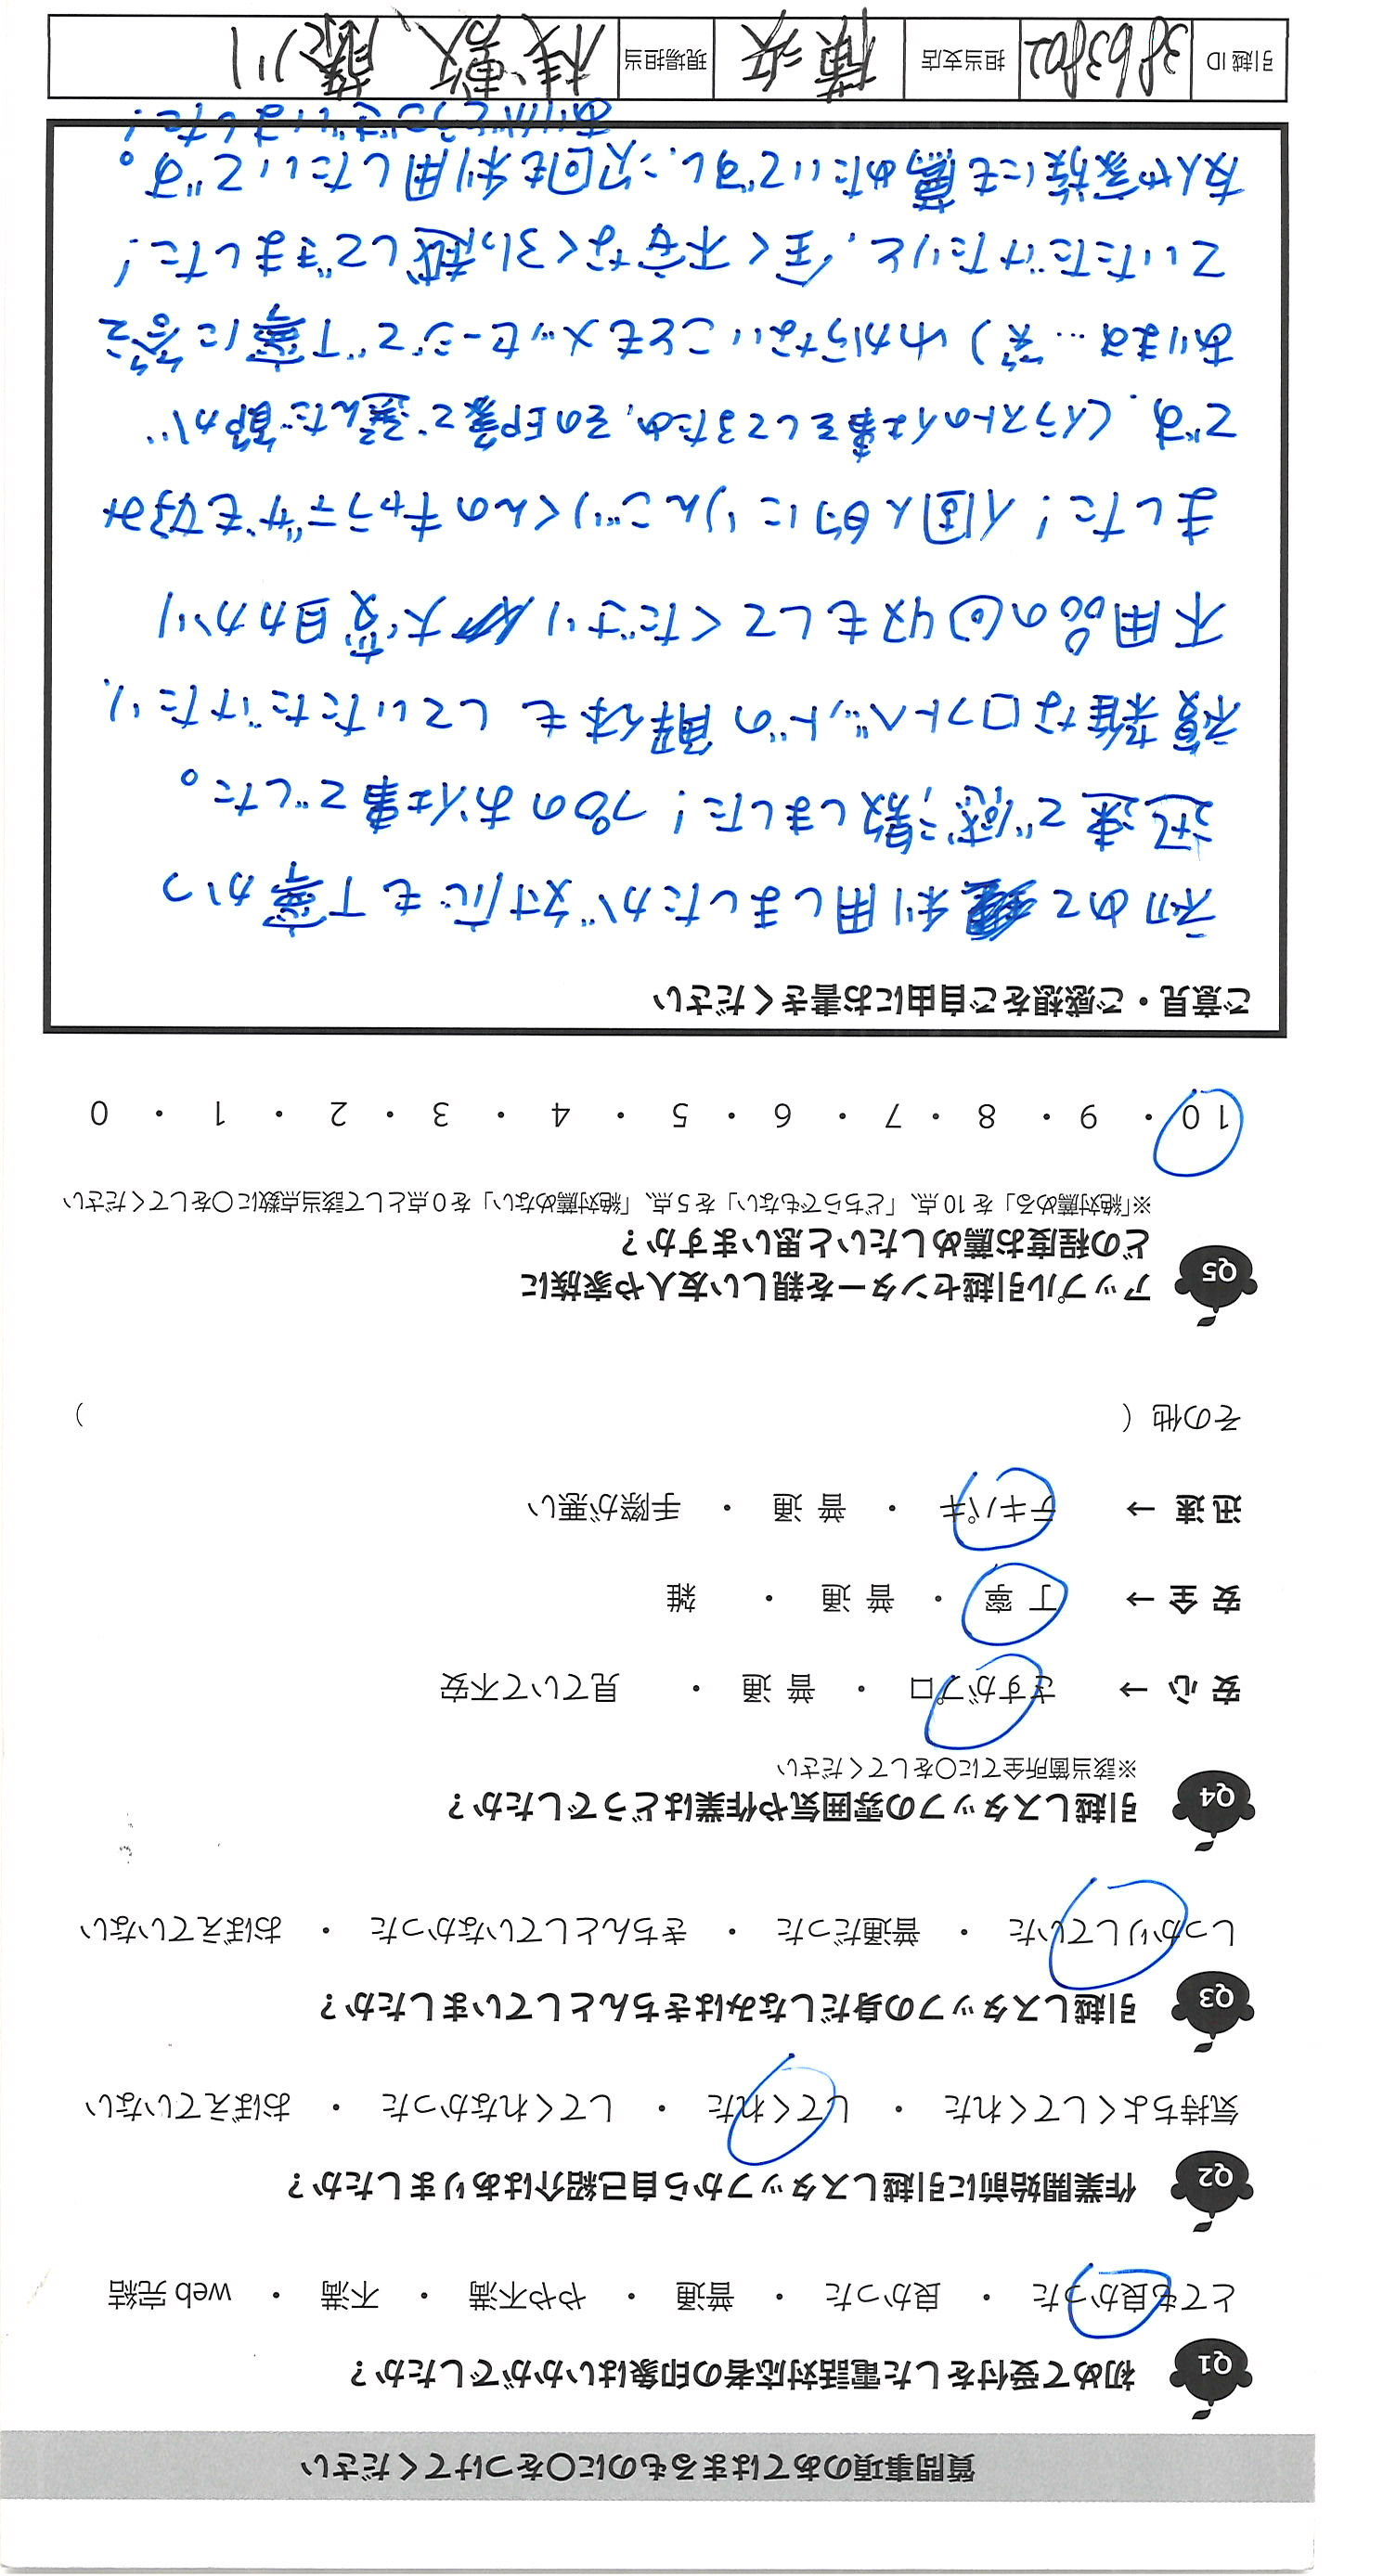 質問事項のあてはまるものに〇をつけてください
Q1 初めて受付をした電話対応者の印象はいかがでしたか？
とても良かった ・ 良かった ・ 普通 ・ やや不満 ・ 不満 ・ web 完結
Q2 作業開始前に引越しスタッフから自己紹介はありましたか？
気持ちよくしてくれた ・ してくれた ・ してくれなかった ・ おぼえていない
Q3 引越しスタッフの身だしなみはきちんとしていましたか？
しっかりしていた ・ 普通だった ・ きちんとしていなかった ・ おぼえていない
Q4 引越しスタッフの雰囲気や作業はどうでしたか？
※該当箇所全てに〇をしてください
安 心 → さすがプロ ・ 普 通 ・ 見ていて不安
安 全 → 丁 寧 ・ 普 通 ・ 雑
迅 速 → テキパキ ・ 普 通 ・ 手際が悪い
その他（ ）
Q5 アップル引越センターを親しい友人や家族に
どの程度お薦めしたいと思いますか？
※「絶対薦める」を 10 点、「どちらでもない」を 5 点、「絶対薦めない」を 0 点として該当点数に〇をしてください
10 ・ 9 ・ 8 ・ 7 ・ 6 ・ 5 ・ 4 ・ 3 ・ 2 ・ 1 ・ 0
ご意見・ご感想をご自由にお書きください
初めて利用しましたが対応も丁寧かつ
迅速で感激しました！プロのお仕事でした。
複雑なロフトベッドの解体もしていただけたり、
不用品の回収もしてくださり大変助かり
ました！個人的にりんごりくんのキャラデザも好み
です。（イラストの仕事をしてるため、その印象で選んだ節が
あります…笑）わからないこともメッセージで丁寧に答え
ていただけたりと、全く不安なく引っ越しできました！
友人や家族にも薦めたいですし、次回も利用したいです。
ありがとうございました！
引越 ID 3863802 担当支店 横浜 現場担当